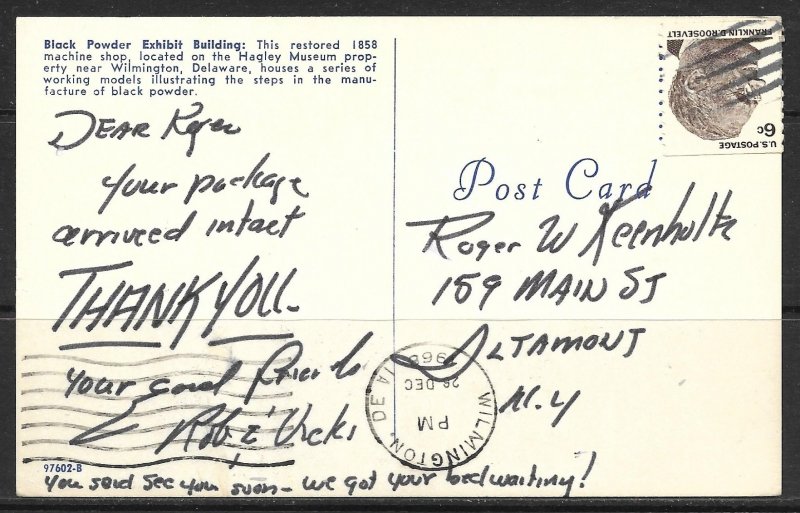 Black Powder Exhibit Building: This restored 1858
machine shop, located on the Hagley Museum prop-
erty near Wilmington, Delaware, houses a series of
working models illustrating the steps in the manu-
facture of black powder.
DEAR Roger
Your package
arrived intact
THANK YOU-
Your good friends
Rob & Vicki
97602-B
You said see you soon - we got your bed waiting!
Post Card
Roger W Keenholts
159 MAIN ST
ALTAMONT
N.Y
WILMINGTON, DE
PM
28 DEC
1968
FRANKLIN D. ROOSEVELT
U.S. POSTAGE
6c